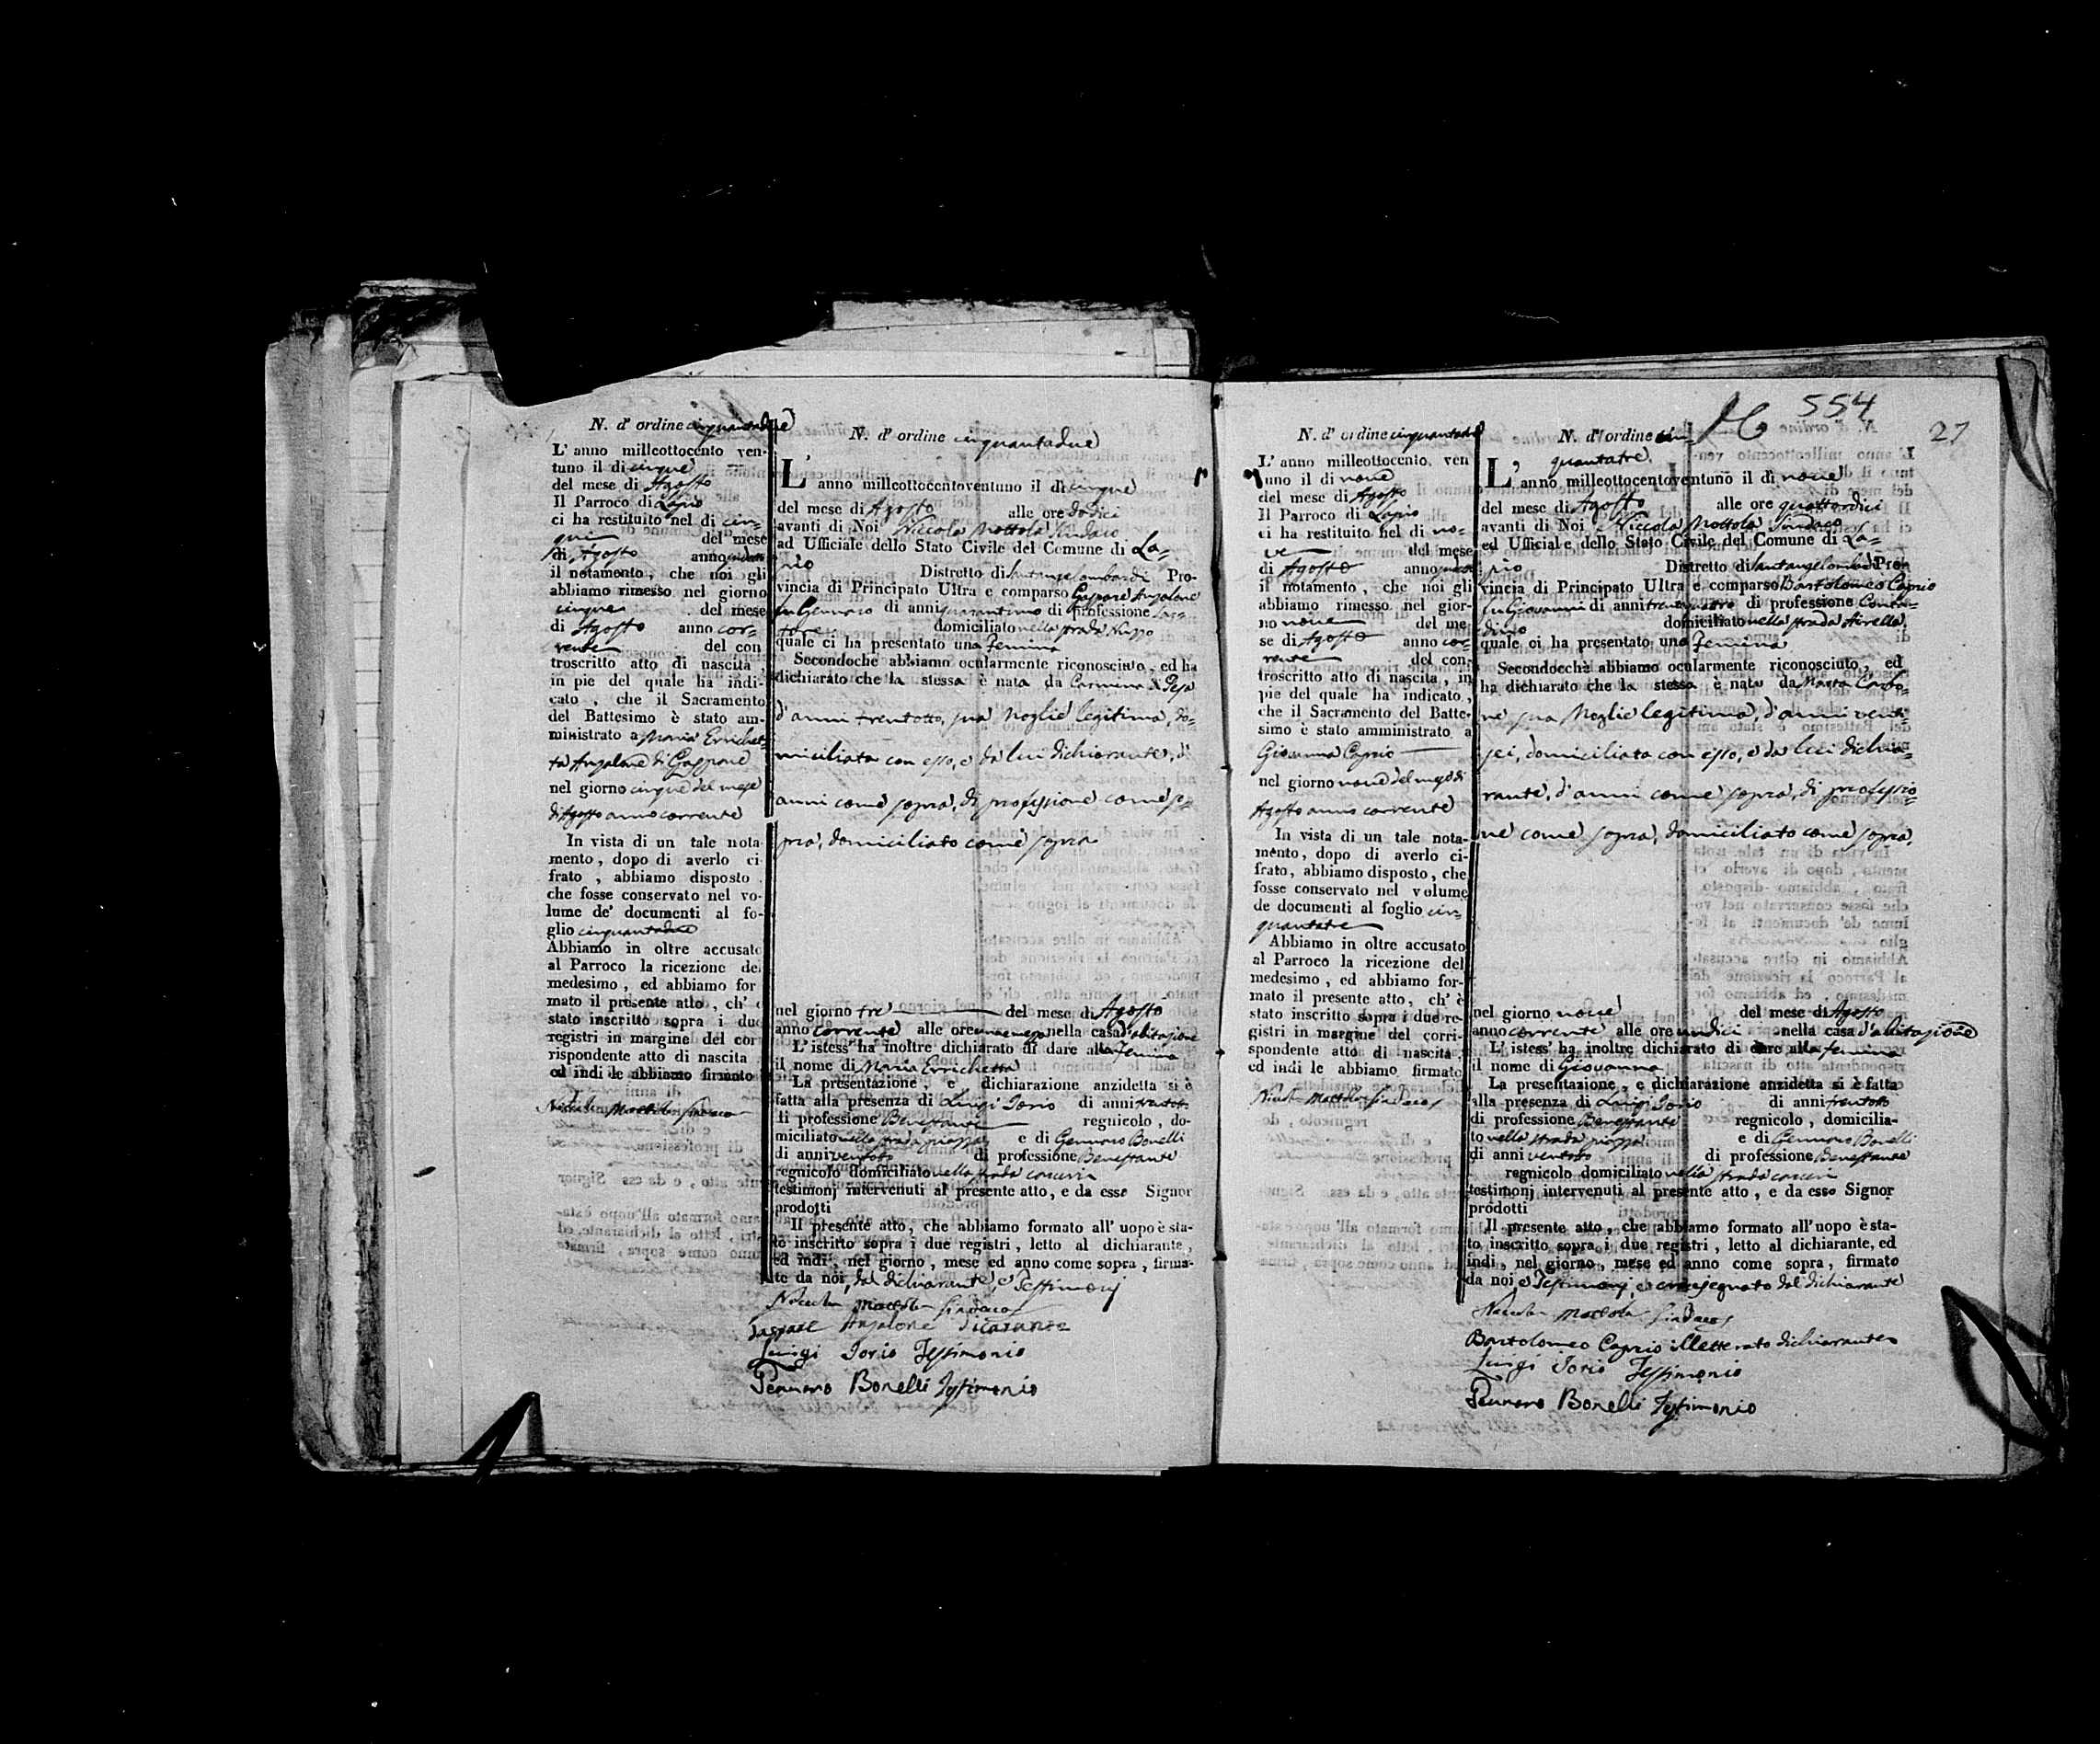 N. d'ordine cinquantadue
L'anno milleottocento ven-
tuno il di cinque
del mese di Agosto
Il Parroco di Lapio
ci ha restituito nel di cin-
que del mese
di Agosto anno
il notamento, che noi gli
abbiamo rimesso nel giorno
cinque del mese
di Agosto anno cor-
rente del con
troscritto atto di nascita,
in pie del quale ha indi-
cato, che il Sacramento
del Battesimo è stato am-
ministrato a Maria Errichet-
ta Anzalone di Gaspare
nel giorno cinque del mese
di Agosto anno corrente
In vista di un tale nota
mento, dopo di averlo ci
frato, abbiamo disposto
che fosse conservato nel vo-
lume de' documenti al fo-
glio cinquantadue
Abbiamo in oltre accusato
al Parroco la ricezione del
medesimo, ed abbiamo for
mato il presente atto, ch' è
stato inscritto sopra i due
registri in margine del cor
rispondente atto di nascita
ed indi le abbiamo firmato
Niccola Mottola Sindaco
N. d'ordine cinquantadue
L'anno milleottocentoventuno il di cinque
del mese di Agosto alle ore dodici
avanti di Noi Niccola Mottola Sindaco
ad Ufficiale dello Stato Civile del Comune di La-
pio Distretto di Santangelombardi Pro-
vincia di Principato Ultra e comparso Gaspare Anzalone
fu Gennaro di anni quarantuno di professione Sar-
tore domiciliato nella strada Nuzzo
quale ci ha presentato una Femina
Secondoche abbiamo ocularmente riconosciuto, ed ha
dichiarato che la stessa è nata da Carmina
d'anni trentotto, sua Moglie legitima, do-
miciliata con esso, e da lui dichiarante, di
anni come sopra, di professione come so-
pra, domiciliato come sopra
nel giorno tre del mese di Agosto
anno corrente alle ore nella casa d'abitazione
L'istess' ha inoltre dichiarato di dare alla Femina
il nome di Maria Errichetta
La presentazione, e dichiarazione anzidetta si è
fatta alla presenza di Luigi Iorio di anni trentotto
di professione Benestante regnicolo, do-
miciliato nella strada piazza e di Gennaro Bonelli
di anni ventotto di professione Benestante
regnicolo domiciliato nella strada
testimonj intervenuti al presente atto, e da esso Signor
prodotti
Il presente atto, che abbiamo formato all' uopo è sta-
to inscritto sopra i due registri, letto al dichiarante,
ed indi, nel giorno, mese ed anno come sopra, firma-
to da noi, dal dichiarante, e Testimonj
Niccola Mottola Sindaco
Gaspare Anzalone Dicarante
Luigi Iorio Testimonio
Gennaro Bonelli Testimonio
554
27
N. d'ordine cinquantatre
L'anno milleottocento ven
uno il di nove
del mese di Agosto
Il Parroco di Lapio
ci ha restituito nel di no-
ve del mese
di Agosto anno
il notamento, che noi gli
abbiamo rimesso nel gior-
no nove del me
se di Agosto anno cor-
rente del con-
troscritto atto di nascita, in
pie del quale ha indicato,
che il Sacramento del Batte-
simo è stato amministrato a
Giovanna Caprio
nel giorno nove del mese di
Agosto anno corrente
In vista di un tale nota-
mento, dopo di averlo ci-
frato, abbiamo disposto, che
fosse conservato nel volume
de documenti al foglio cin-
quantatre
Abbiamo in oltre accusato
al Parroco la ricezione del
medesimo, ed abbiamo for-
mato il presente atto, ch' è
stato inscritto sopra i due re-
gistri in margine del corri-
spondente atto di nascita,
ed indi le abbiamo firmato
Niccola Mottola Sindaco
N. d'ordine cin-
quantatre
L'anno milleottocentoventuno il di nove
del mese di Agosto alle ore quattordici
avanti di Noi Niccola Mottola Sindaco
ed Ufficiale dello Stato Civile del Comune di La-
pio Distretto di Santangelombardi Pro-
vincia di Principato Ultra e comparso Bartolomeo Caprio
fu Giovanni di anni trentaquattro di professione Conta-
dino domiciliato nella strada Airella
quale ci ha presentato una Femina
Secondocchè abbiamo ocularmente riconosciuto, ed
ha dichiarato che la stessa è nata da Marta Carbo-
ne sua Moglie legitima, d'anni venti-
sei, domiciliata con esso, e da lui dichia-
rante, d'anni come sopra, di professio-
ne come sopra, domiciliato come sopra,
nel giorno nove del mese di Agosto
anno corrente alle ore undici nella casa d'abitazione
L'istess' ha inoltre dichiarato di dare alla femina
il nome di Giovanna
La presentazione, e dichiarazione anzidetta si è fatta
alla presenza di Luigi Iorio di anni trentotto
di professione Benestante regnicolo, domicilia-
to nella strada piazza e di Gennaro Bonelli
di anni ventotto di professione Benestante
regnicolo domiciliato nella strada
testimonj intervenuti al presente atto, e da esso Signor
prodotti
Il presente atto, che abbiamo formato all'uopo è sta-
to inscritto sopra i due registri, letto al dichiarante, ed
indi, nel giorno, mese ed anno come sopra, firmato
da noi, e Testimonj, e crocesegnato dal dichiarante
Niccola Mottola Sindaco
Bartolomeo Caprio illetterato dichiarante
Luigi Iorio Testimonio
Gennaro Bonelli Testimonio